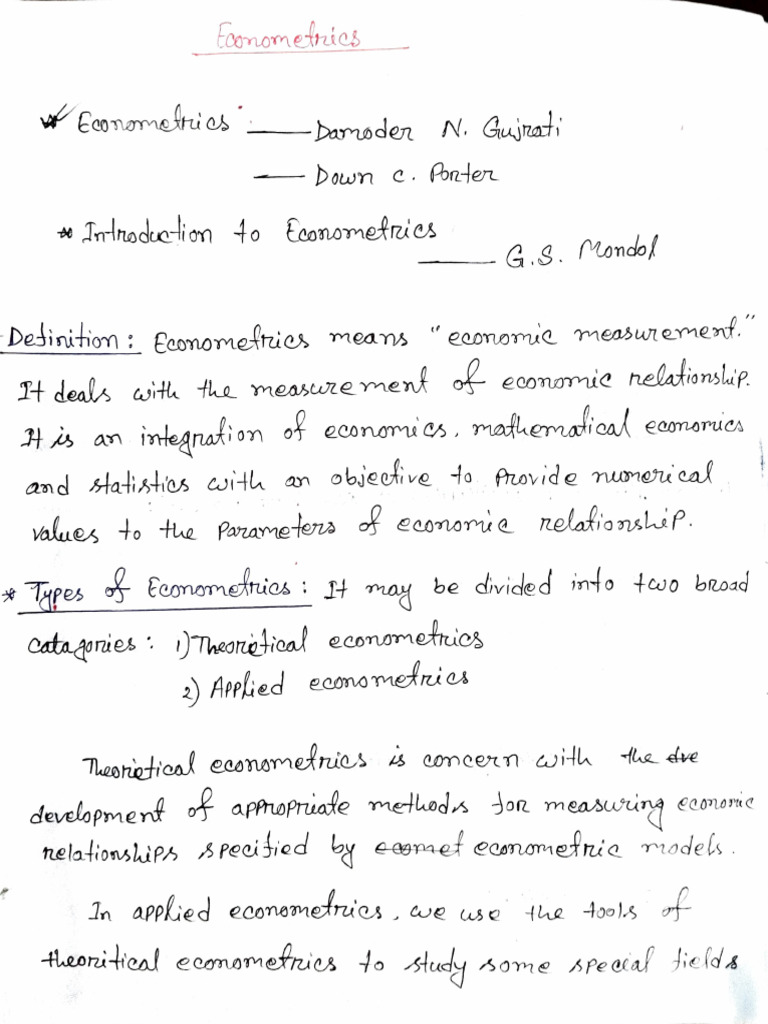 Econometrics
* Econometrics — Damoder N. Gujrati
— Down C. Porter
* Introduction to Econometrics
— G.S. Mondol
Definition: Econometrics means "economic measurement."
It deals with the measurement of economic relationship.
It is an integration of economics, mathematical economics
and statistics with an objective to provide numerical
values to the parameters of economic relationship.
* Types of Econometrics: It may be divided into two broad
catagories: 1) Theoritical econometrics
2) Applied econometrics
Theoritical econometrics is concern with the dve
development of appropriate methods for measuring economic
relationships specified by ecomet econometric models.
In applied econometrics, we use the tools of
theoritical econometrics to study some special fields